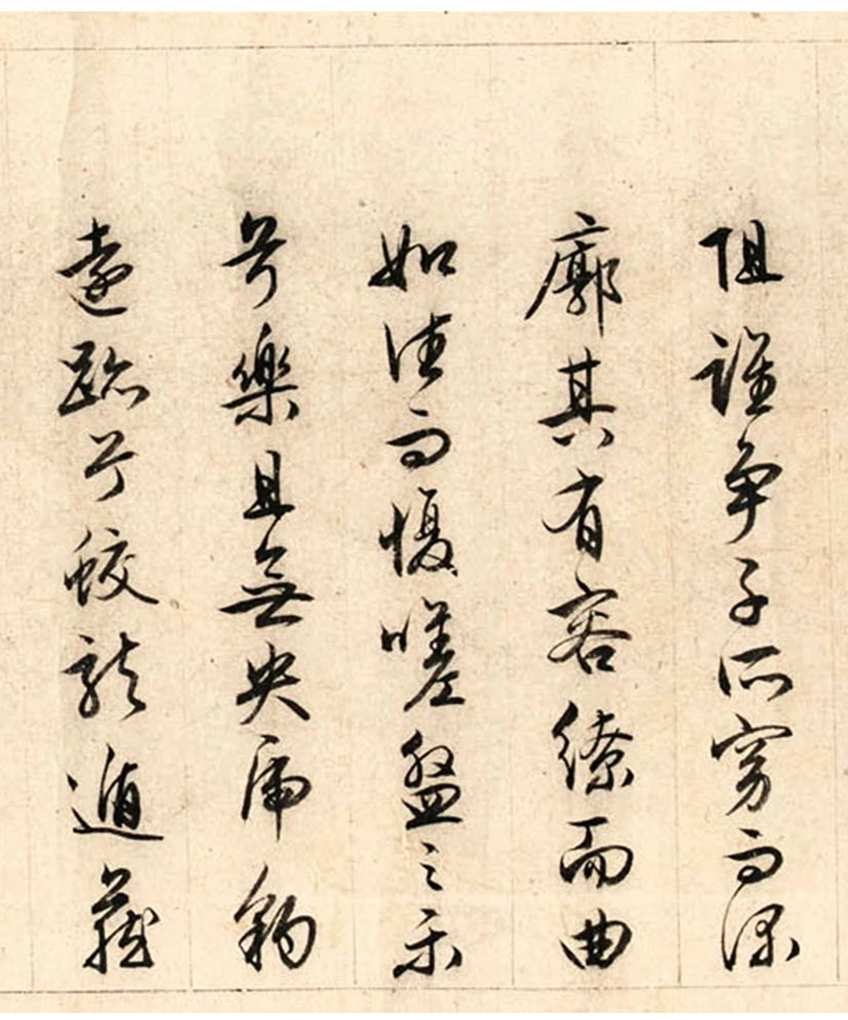 阻誰爭子所窈而深
廓其有容繚而曲
如往而復嗟盤之樂
兮樂且無央虎豹
遠跡兮蛟龍遁藏